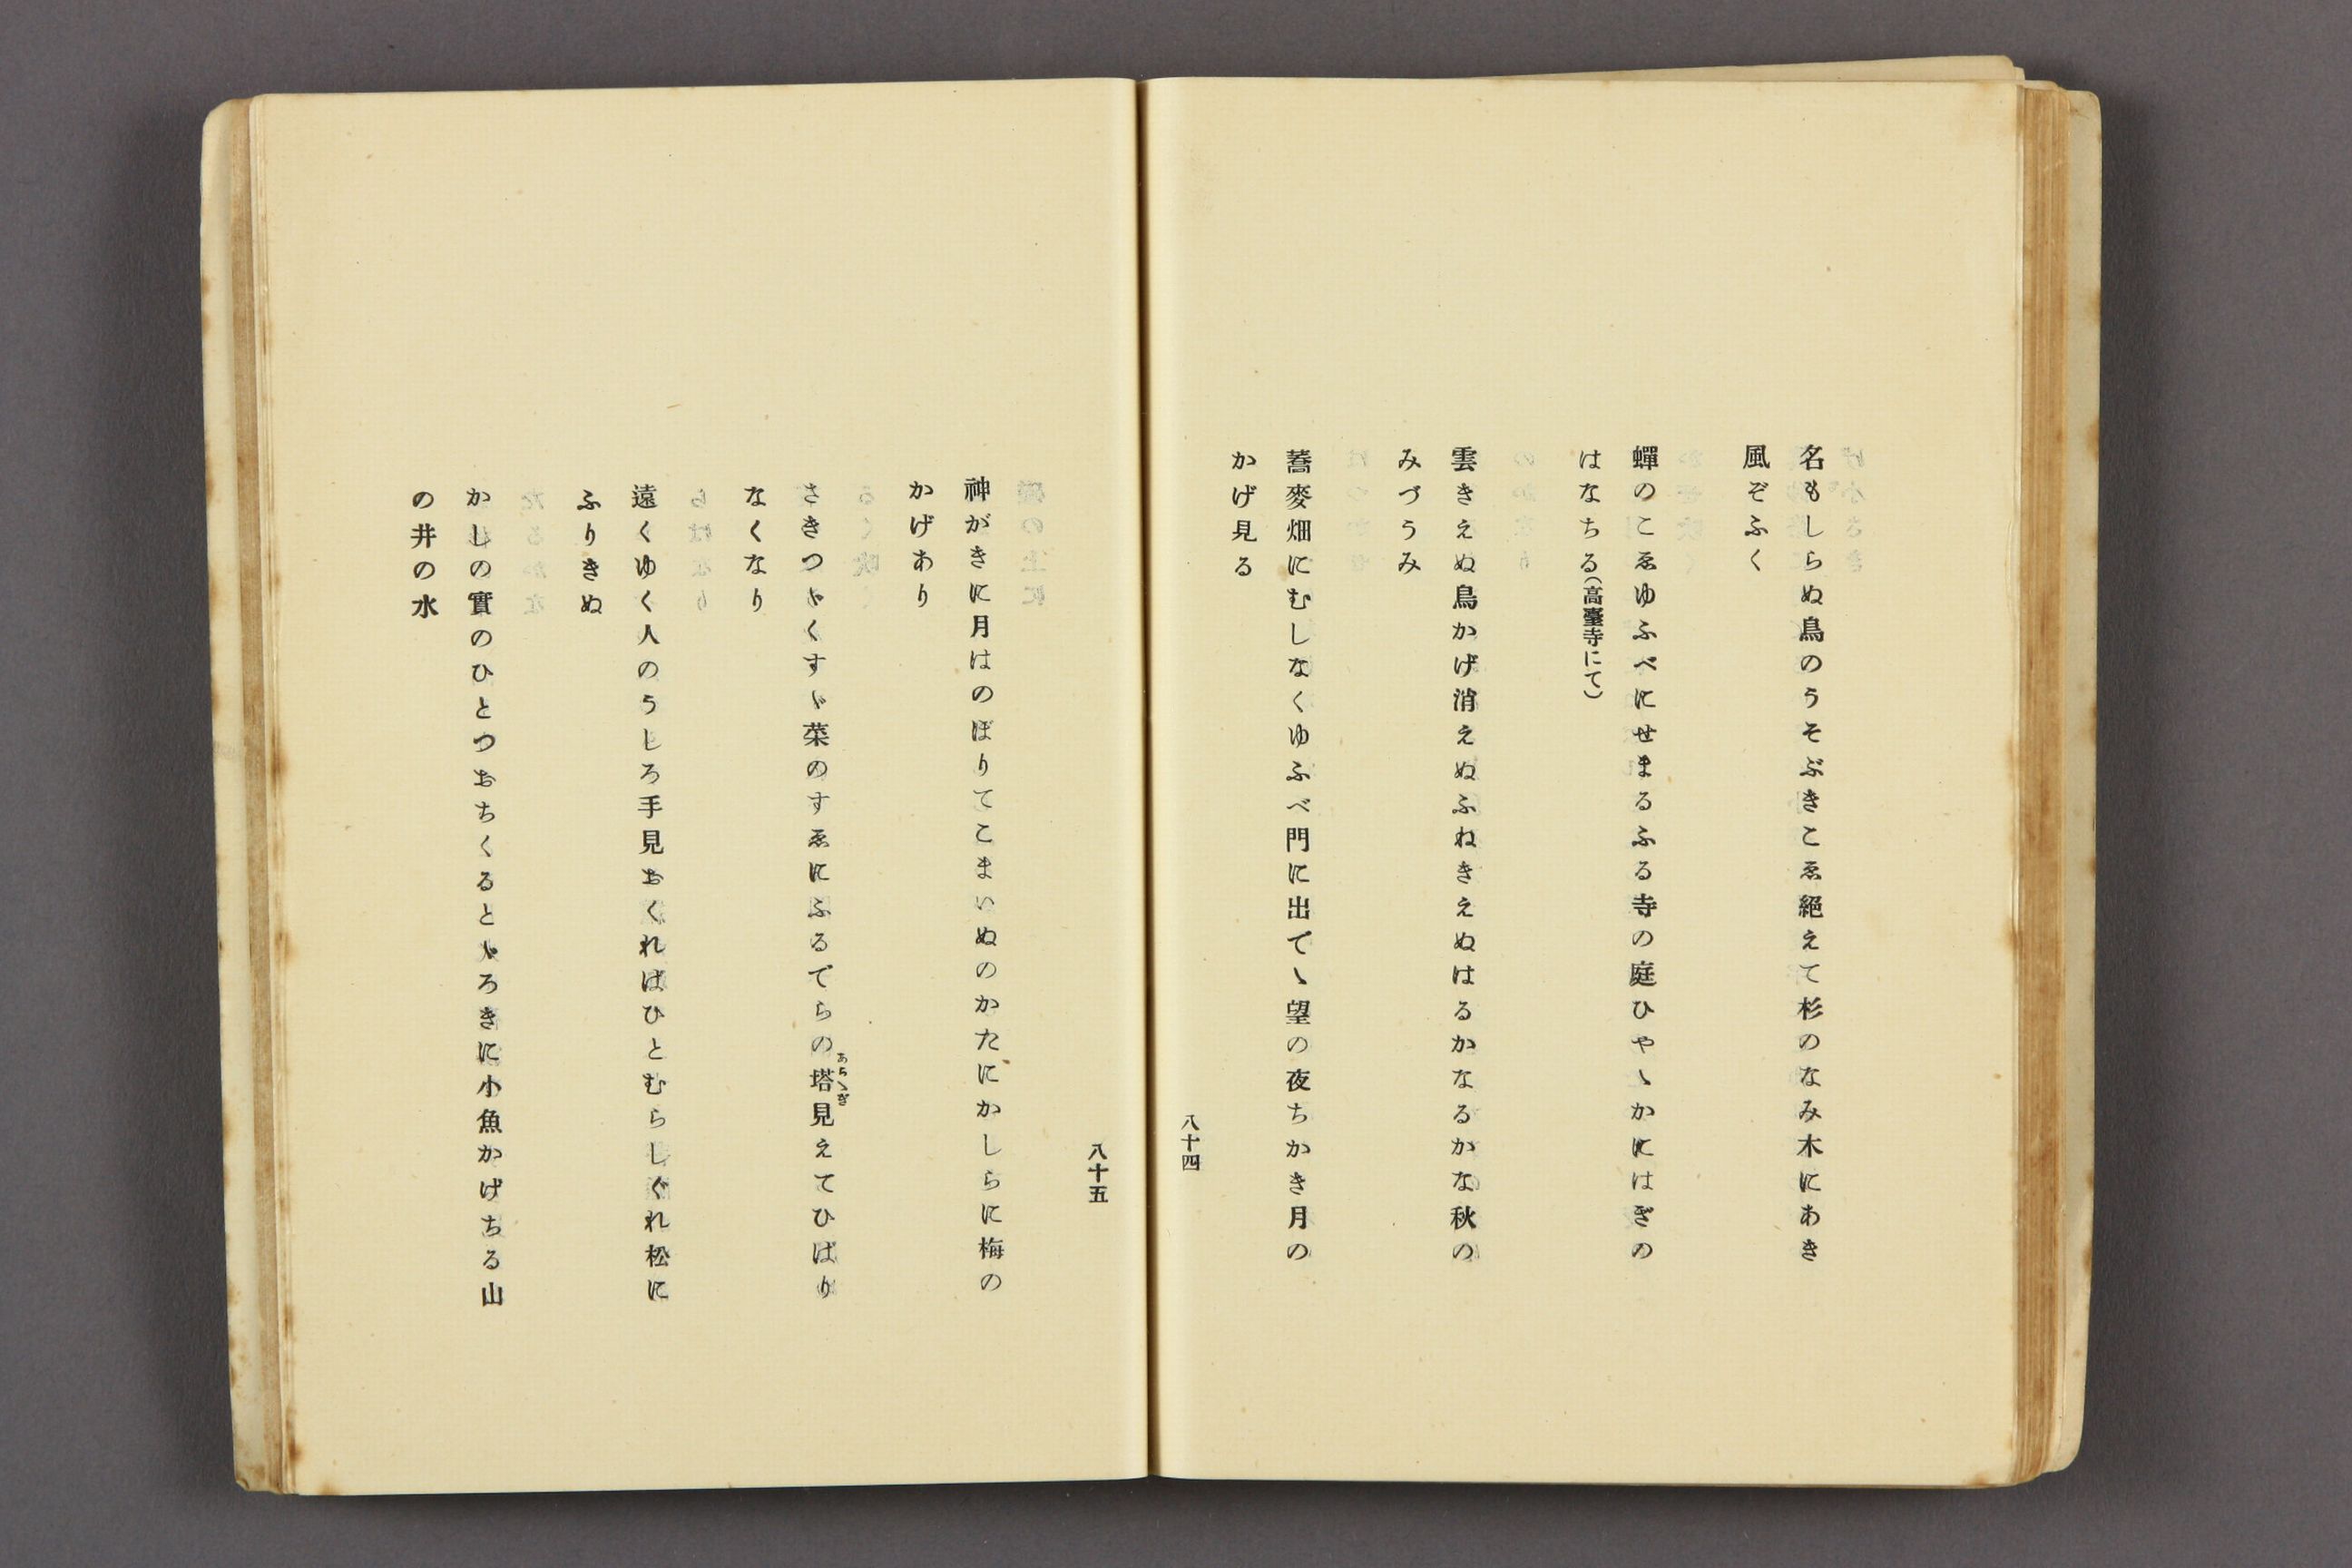 名もしらぬ鳥のうそぶきこゑ絕えて杉のなみ木にあき
風ぞふく
蟬のこゑゆふべにせまるふる寺の庭ひやゝかにはぎの
はなちる(高臺寺にて)
雲きえぬ鳥かげ消えぬふねきえぬはるかなるかな秋の
みづうみ
蕎麥畑にむしなくゆふべ門に出でゝ望の夜ちかき月の
かげ見る
八十四
八十五
神がきに月はのぼりてこまいぬのかたにかしらに梅の
かげあり
さきつゞくすゞ菜のすゑにふるでらの塔見えてひばり
あらゝぎ
なくなり
遠くゆく人のうしろ手見おくればひとむらしぐれ松に
ふりきぬ
かしの實のひとつおちくるとゞろきに小魚かげちる山
の井の水